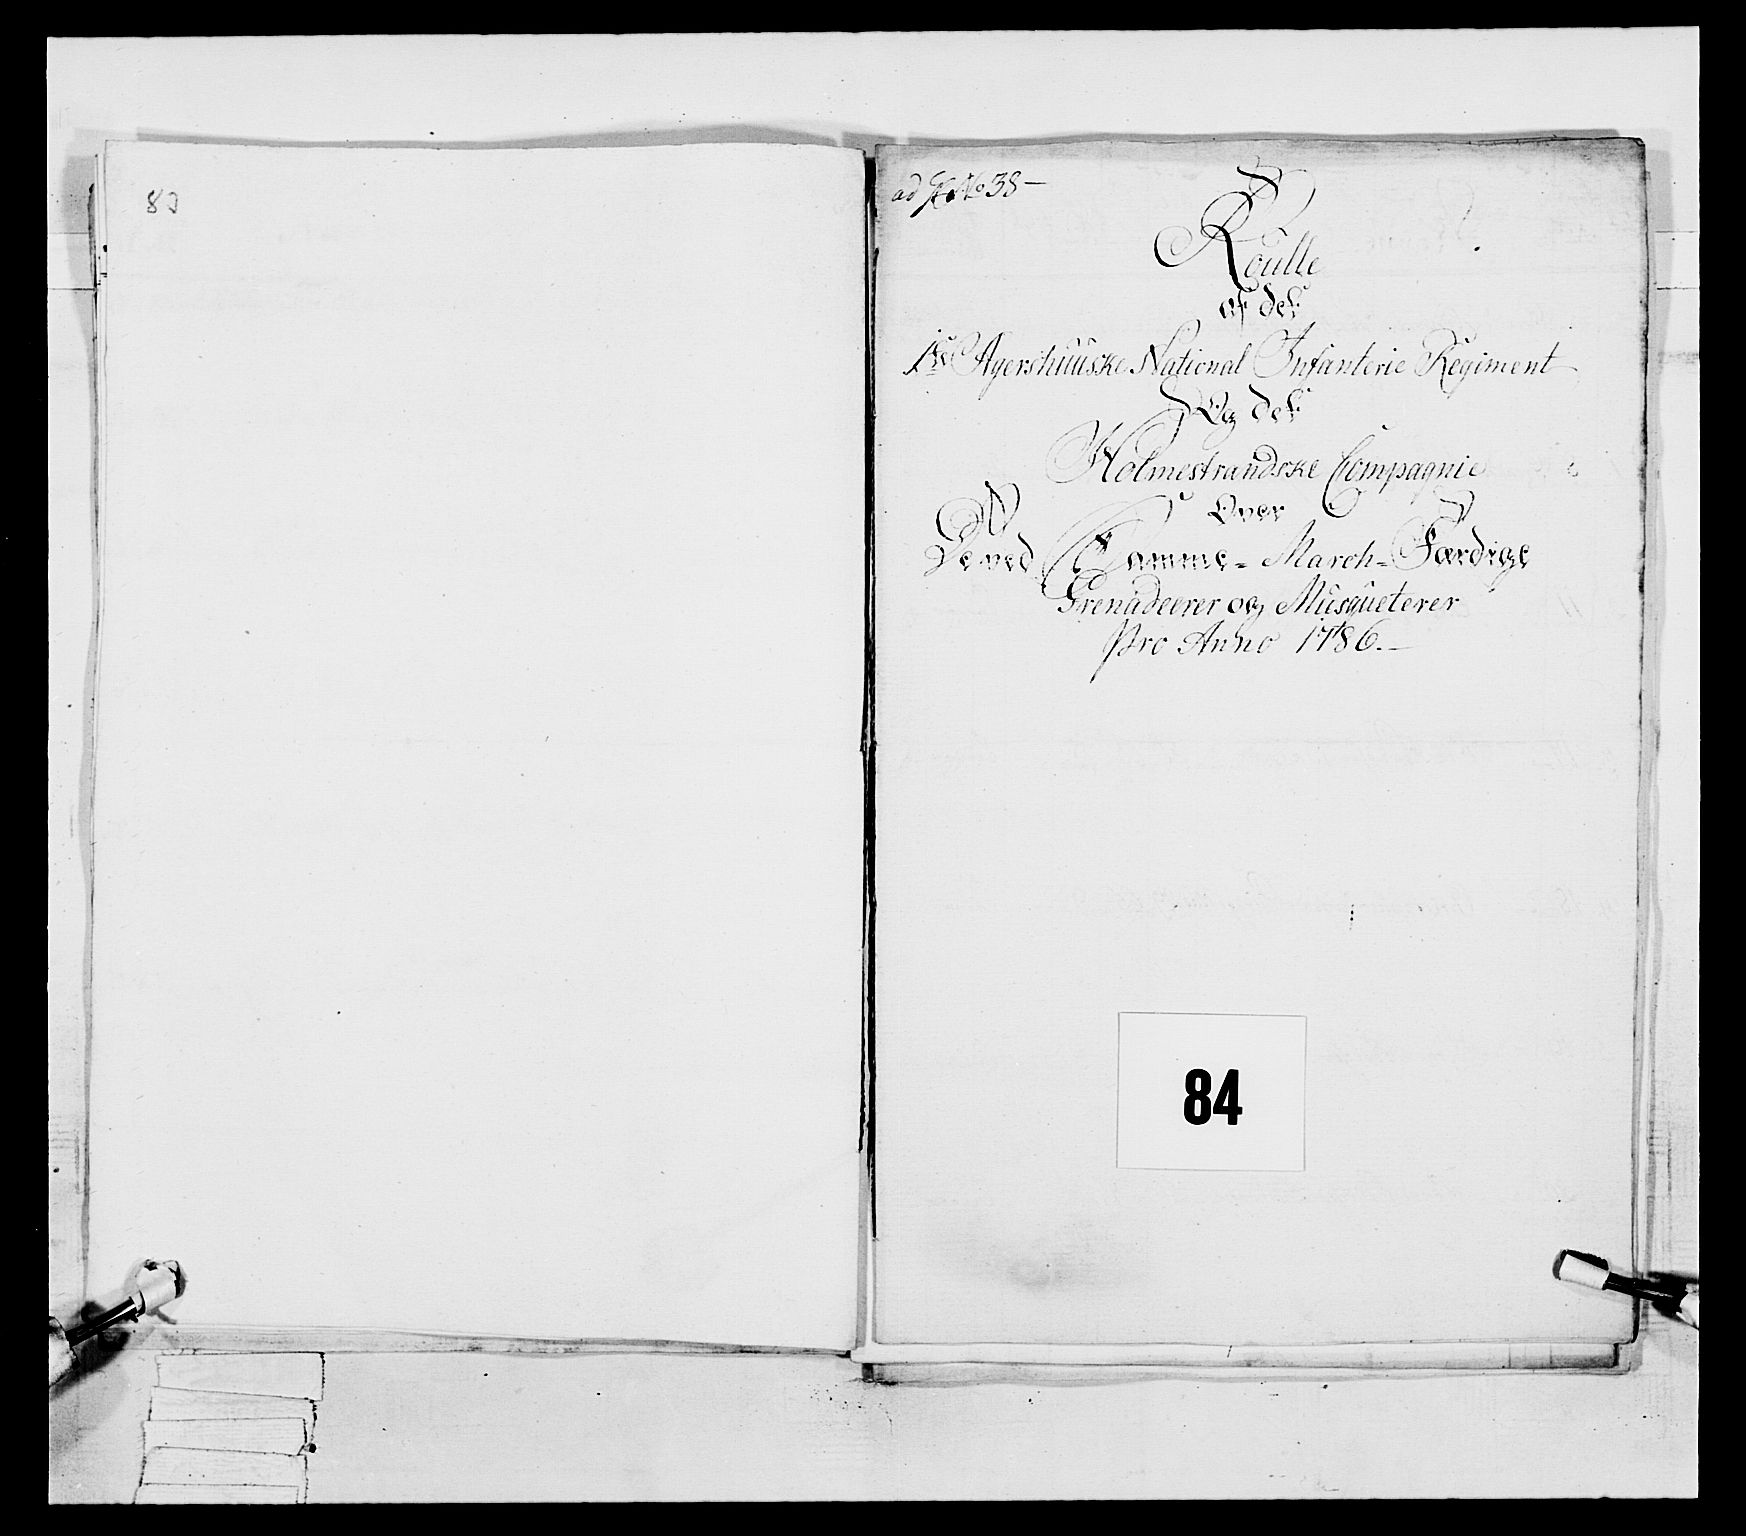 83
ad No 38 –
Roulle
af det
1ste Agershuuske National Infanterie Regiment
Og det
Holmestrandske Compagnie
Over
De ved Samme = March = Færdige
Grenadeerer og Musqueterer
Pro Anno 1786. –
84